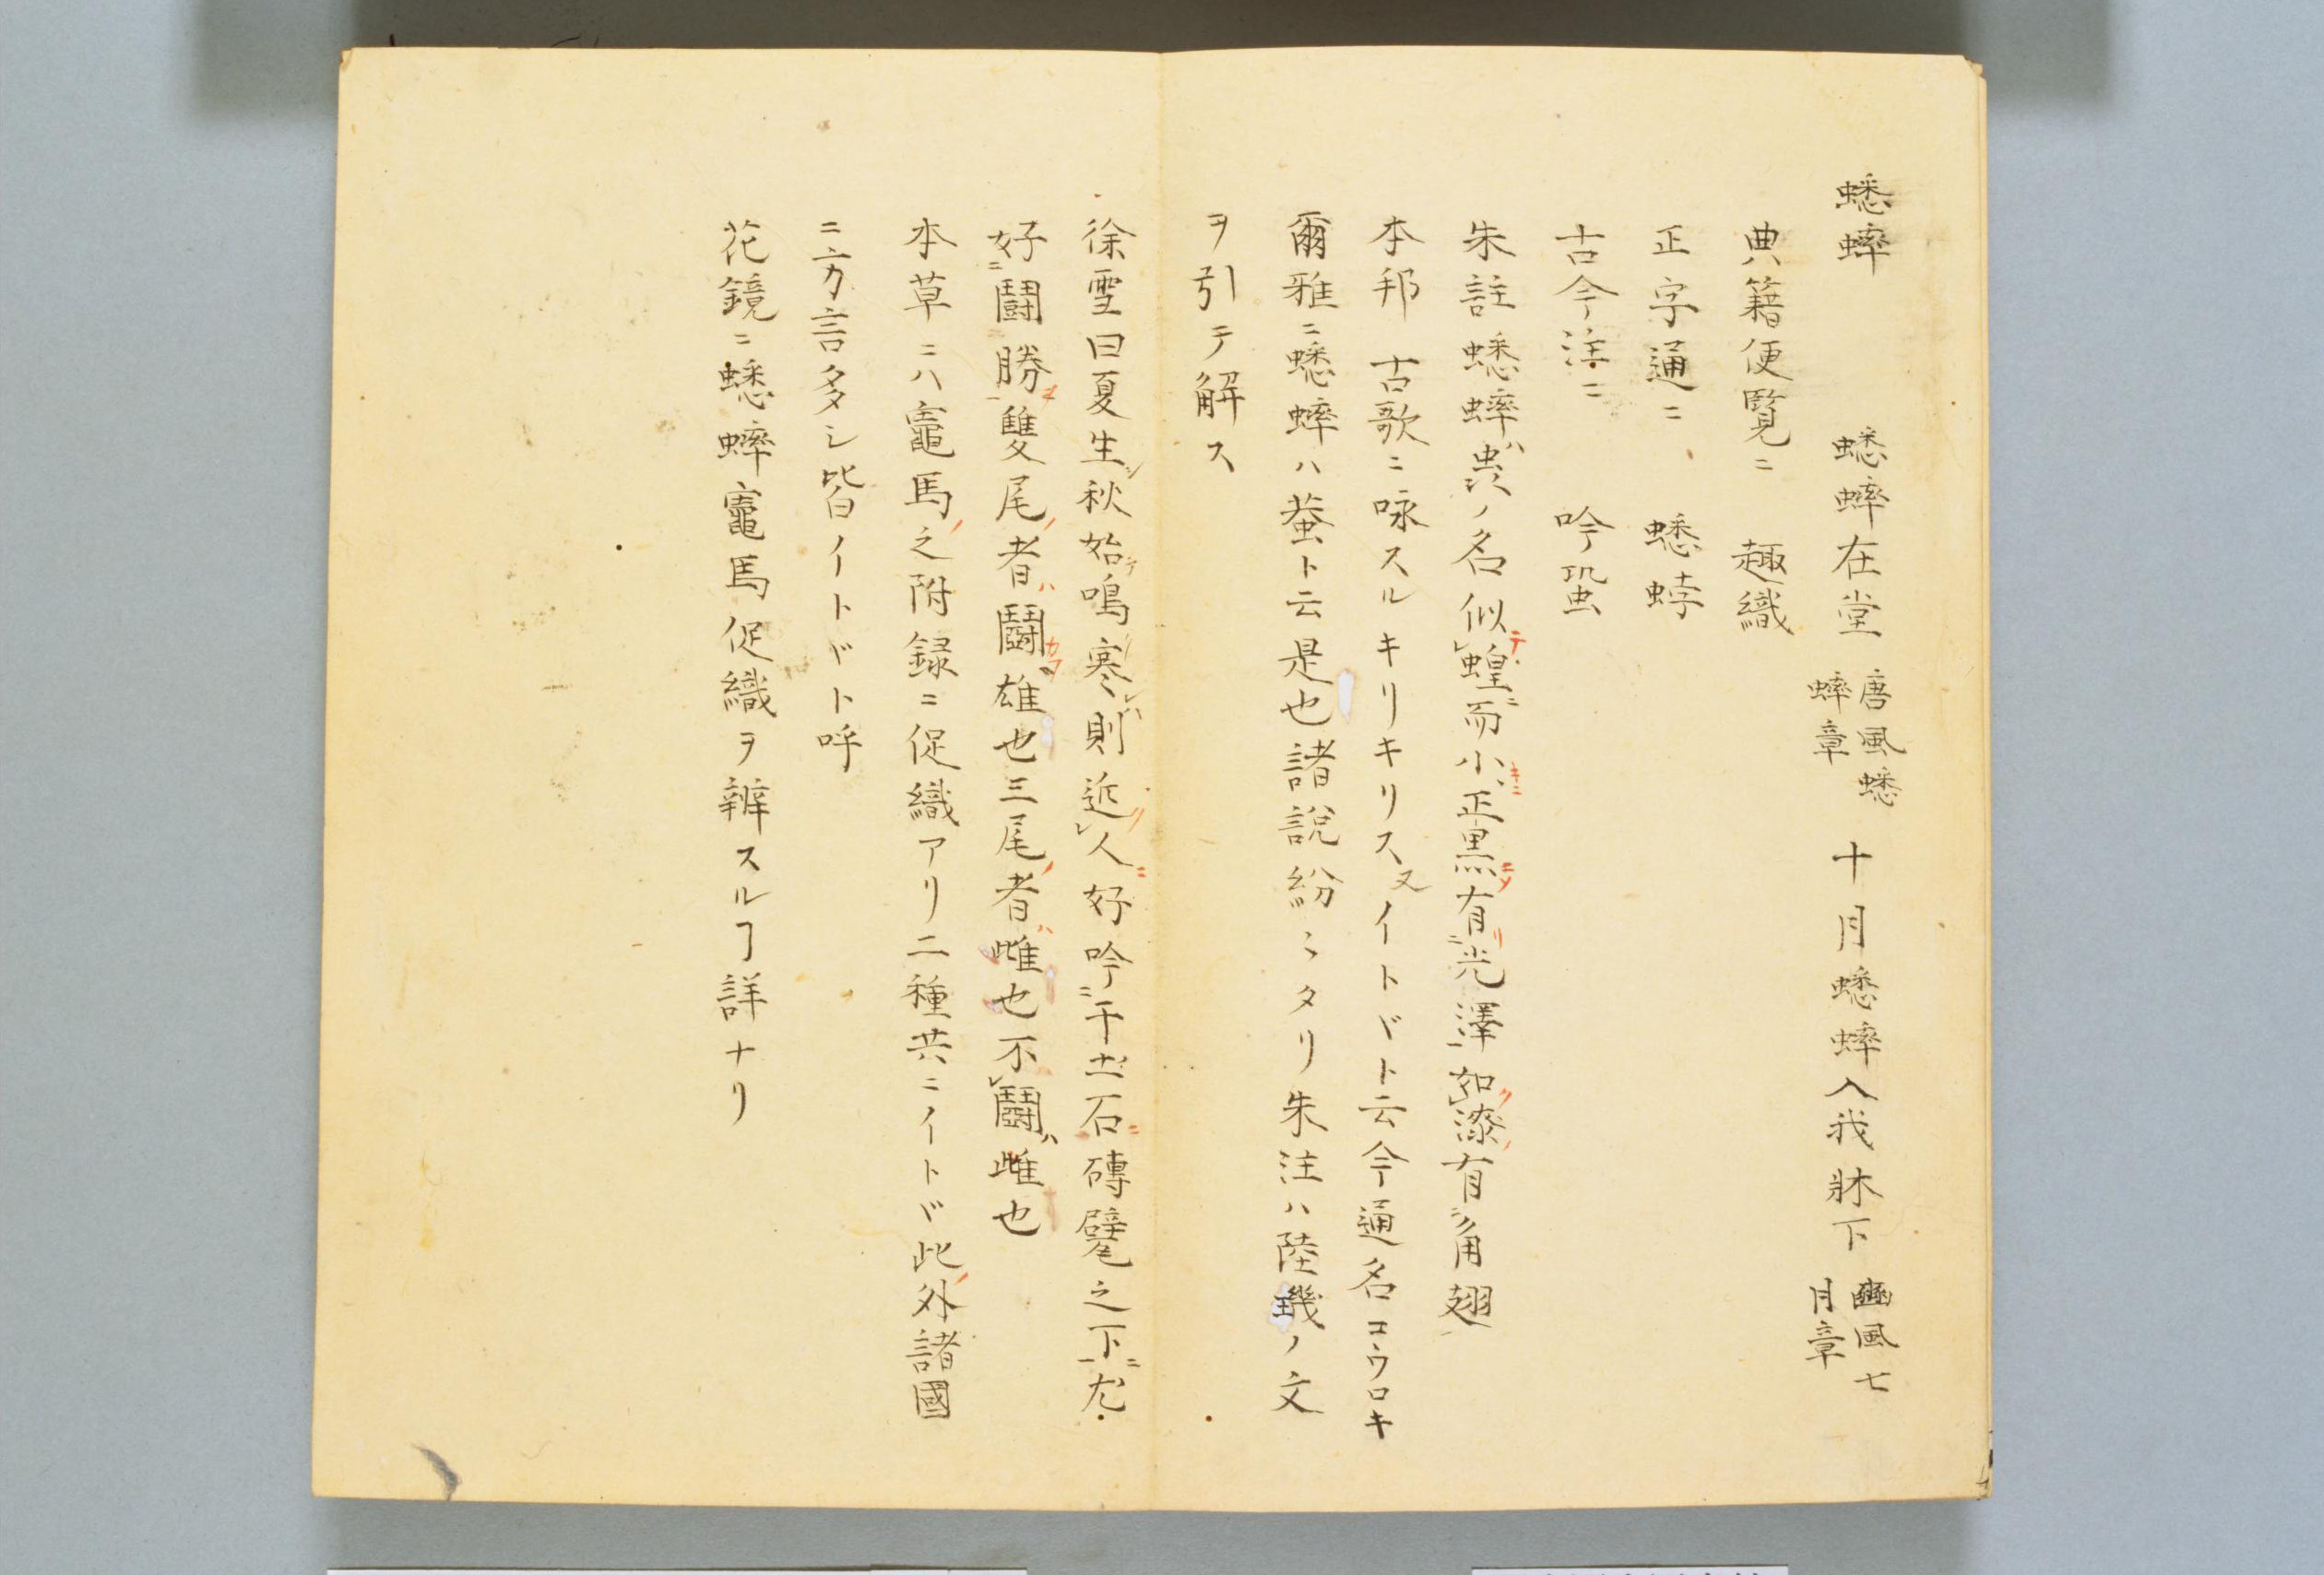 蟋蟀　蟋蟀在堂 唐風蟋蟀章　十月蟋蟀入我牀下 豳風七月章
典籍便覧ニ　趣織
正字通ニ　蟋蛑
古今注ニ　吟蛩
朱註蟋蟀ハ虫ノ名似テレ蝗ニ而小キニ正黒ニメ有リ二光澤一如レ漆ノ有二角翅一
本邦　古歌ニ咏スルキリキリス又イトヾト云今通名コウロキ
爾雅ニ蟋蟀ハ蛬ト云是也諸説紛〻タリ朱注ハ陸璣ノ文
ヲ引テ解ス
徐雪曰夏生シ秋始テ鳴ク寒レハ則近リレ人ニ好吟二于土石ニ磚甓之下一ニ尤
好二闘勝一ヲ雙尾ノ者ハ闘カフ雄也三尾ノ者ハ雌也不レ闘ハ雌也
本草ニハ竈馬之附録ニ促織アリ二種共ニイトヾ此外諸國
ニ方言多シ皆イトドト呼
花鏡ニ蟋蟀竈馬促織ヲ辨スルヿ詳ナリ